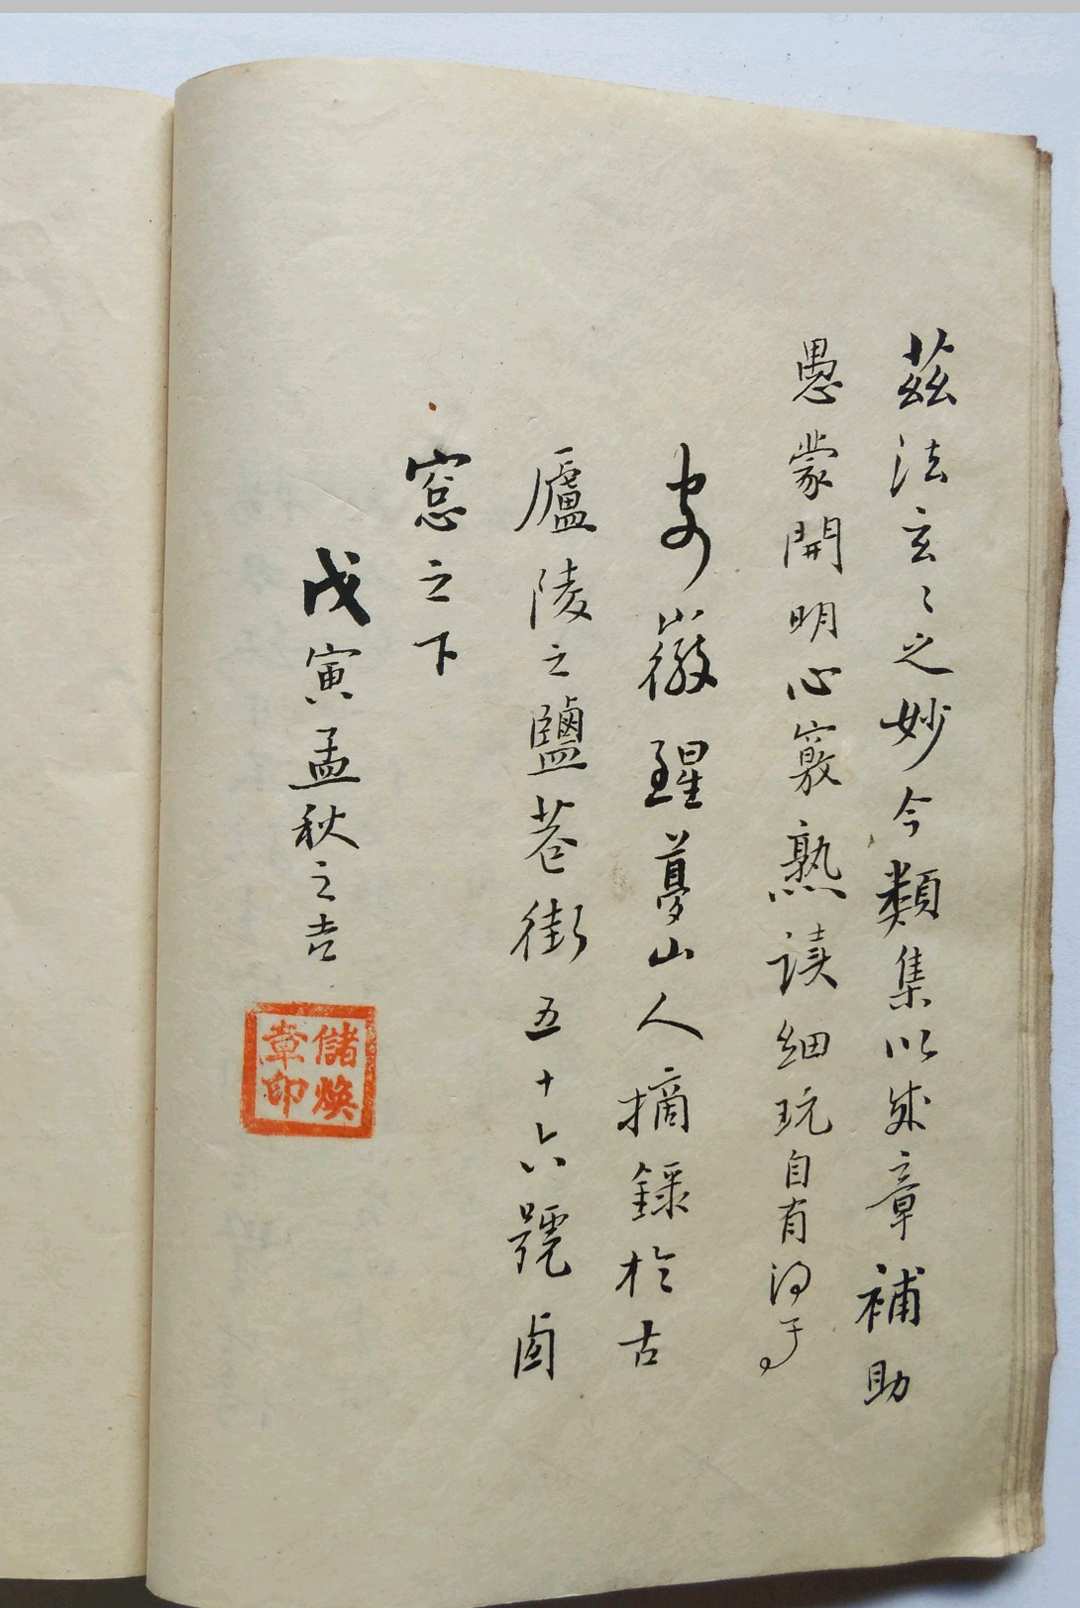 茲法玄〻之妙今類集以成章補助
愚蒙開明心竅熟读細玩自有得乎。
安徽醒夢山人摘錄於古
廬陵之鹽巷街五十六號南
窓之下
戊寅孟秋之吉
儲煥
章印